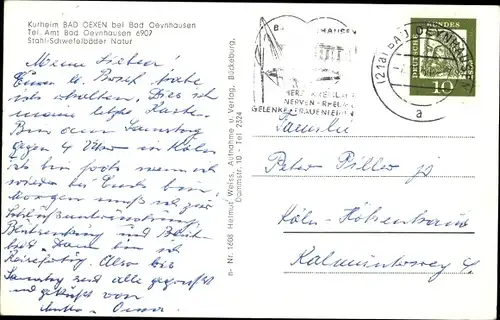 Kurheim BAD OEXEN bei Bad Oeynhausen
Tel. Amt Bad Oeynhausen 6907
Stahl-Schwefelbäder Natur
Meine Lieben!
ich erhalten. Dies ist
meine letzte Karte.
Bin am Samstag
gegen 4 Uhr in Köln
ich bin froh wenn ich
wieder bei Euch bin.
Morgen muß ich zur
Schlußuntersuchung,
Dann bin ich
Reisefertig. Also bis
Samstag seid alle gegrüßt
und geküßt von
Oma
n- Nr. 1606 Helmut Weiss, Aufnahme u. Verlag, Bückeburg,
Dammstr. 10 - Tel 2324
BAD OEYNHAUSEN
HERZ
NERVEN-RHEUMA
GELENKE FRAUENLEIDEN
(21a) BAD OEYNHAUSEN
a
DEUTSCHE BUNDESPOST
10
Familie
Peter Piller jr
Köln-Höhenhaus